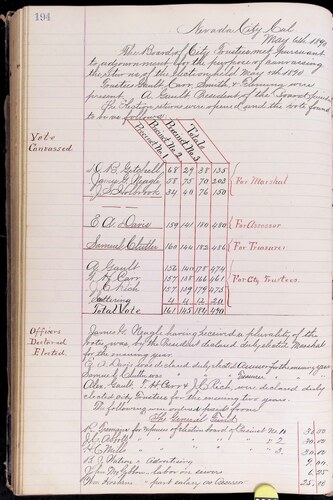 194
Nevada City, Cal
May 6th, 1890
The Board of City Trustees met Pursuant
to adjournment for the purpose of canvassing
the returns of the election held May 5th 1890
Trustees Gault, Carr, Smith, & were
present. A. Gault President of the Board presiding
The Election returns were opened and the vote found
to be as follows
Vote
Canvassed
Precinct No. 1
Precinct No. 2
Precinct No. 3
Totals
R. B. Getchell 68 29 38 135 For Marshal
James G. Neagle 58 75 70 203
J. S. Holbrook 34 40 76 150
E. A. Davis 159 141 180 480 For Assessor
Samuel Clutter 160 144 182 486 For Treasurer
A. Gault 156 140 178 474
T. H. Carr 157 138 166 461 For City Trustees
J. C. Rich 157 139 179 475
Scattering 4 4 12 20
Total Vote 161 145 184 490
Officers
Declared
Elected.
James G. Neagle having received a plurality of the
votes, was by the President declared duly elected Marshal
for the ensuing year.
E. A. Davis was declared duly elected Assessor for the ensuing year
Samuel Clutter was " " " Treasurer " " "
Alex. Gault, T. H. Carr & J. C. Rich, were declared duly
elected City Trustees for the ensuing two years.
The following were ordered paid from
The General Fund
for expenses of election board of Precinct No. 1 30.00
" " " " " " " 2 30.00
" " " " " " " 3 30.00
Advertising
labor on sewers 6.25
part salary as Assessor 25.00